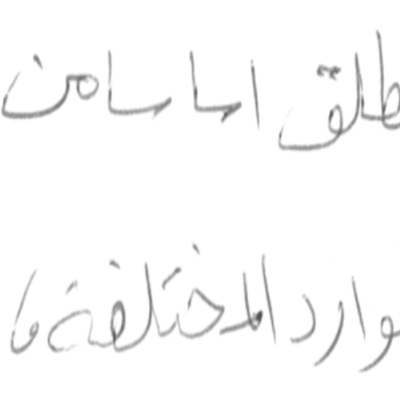 طلق اساسا من
وارد المختلفة ما